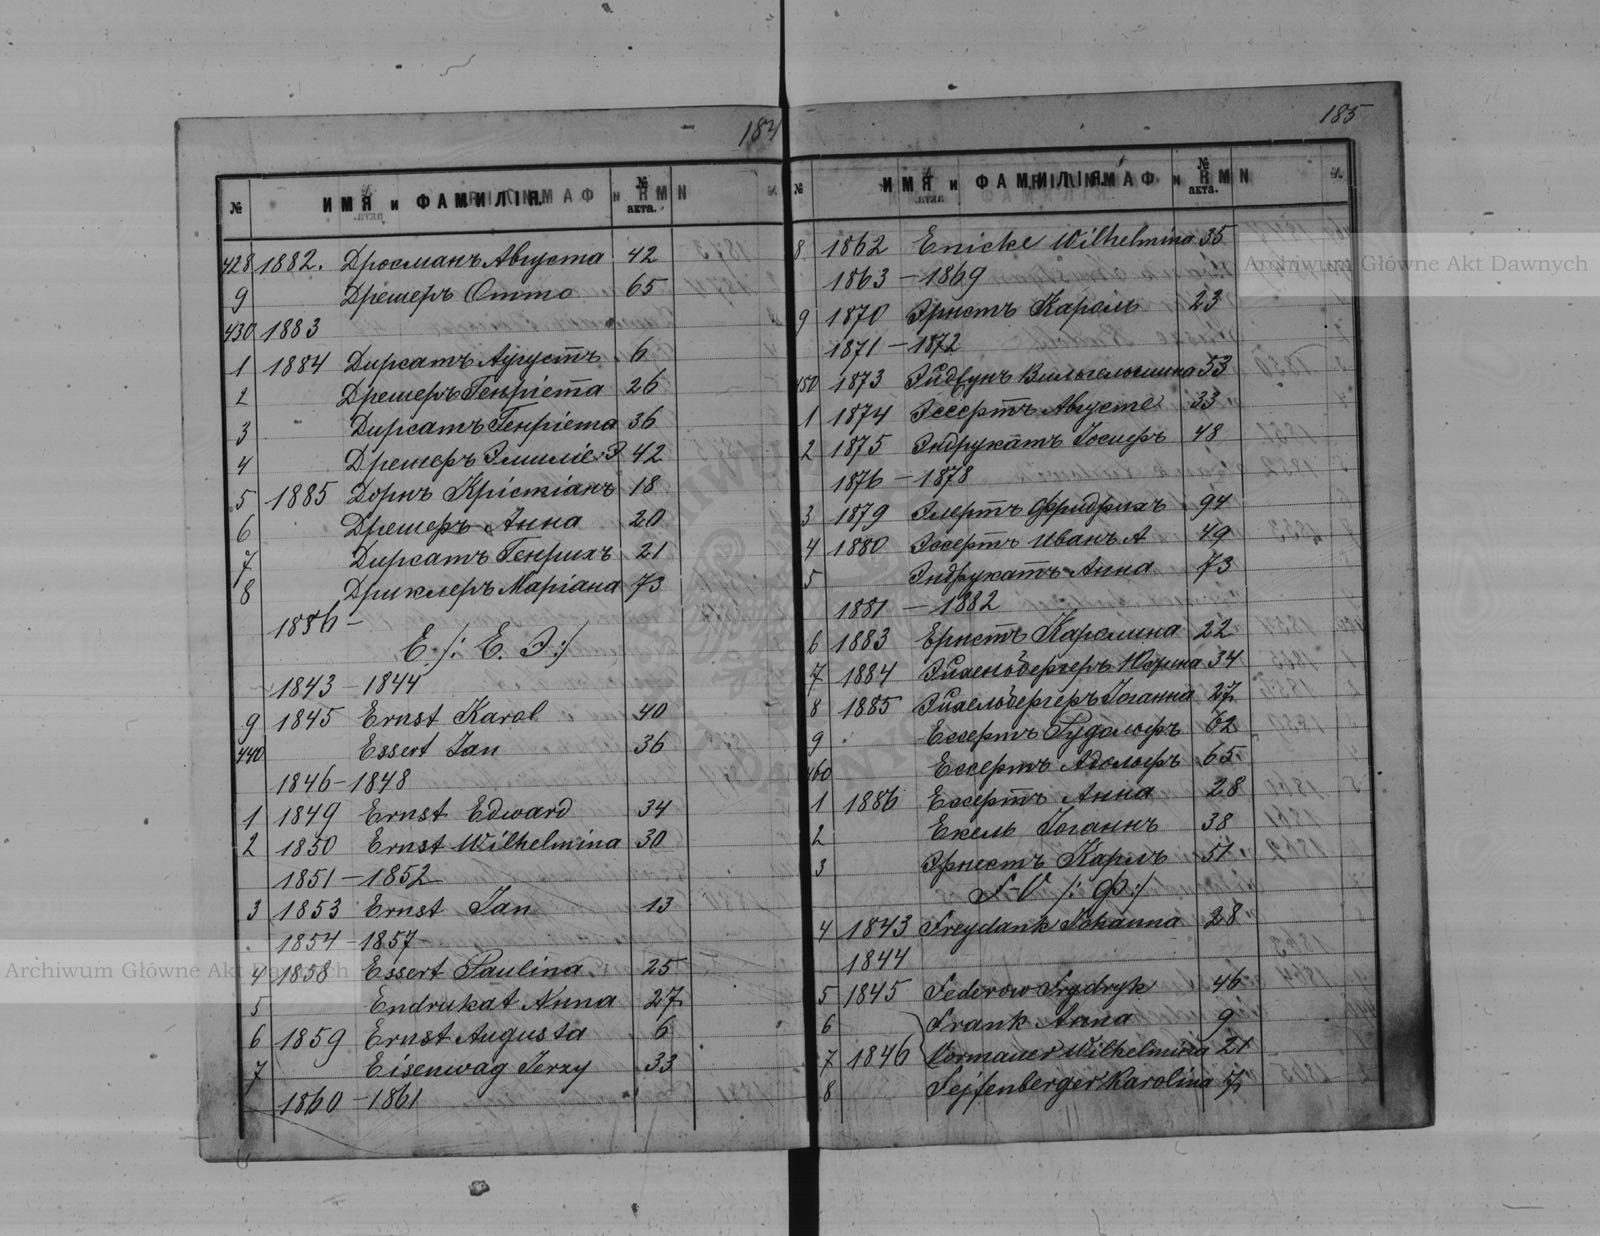 184
№ ИМЯ и ФАМИЛІЯ. № акта.
428 1882. Дросманъ Августа 42
9 Дрешеръ Отто 65
430 1883
1 1884 Дирсатъ Аугустъ 6
2 Дрешеръ Генріета 26
3 Дирсатъ Генріета 36
4 Дрешеръ Эмиліе Э 42
5 1885 Дорнъ Крістіанъ 18
6 Дрешеръ Анна 20
7 Дирсатъ Генрихъ 21
8 Дриклеръ Маріана 73
1886 –
Е. /: Е. Э :/
1843 – 1844
9 1845 Ernst Karol 40
440 Essert Jan 36
1846 – 1848
1 1849 Ernst Edward 34
2 1850 Ernst Wilhelmina 30
1851 – 1852
3 1853 Ernst Jan 13
1854 – 1857 –
4 1858 Essert Paulina 25
5 Endrukat Anna 27
6 1859 Ernst Augusta 6
7 Eisenwag Jerzy 33
1860 – 1861
185
№ ИМЯ и ФАМИЛІЯ. № акта.
8 1862 Enicke Wilhelmina 35
1863 – 1869
9 1870 Эрнстъ Кароль 23
1871 – 1872
450 1873 Вильгельмина 53
1 1874 Эссертъ Августе 33
2 1875 Эндрукатъ Іосиеръ 48
1876 – 1878
3 1879 Элертъ Фридрихъ 94
4 1880 Эссертъ Иванъ А 49
5 Эндрукатъ Анна 73
1881 – 1882
6 1883 Ернстъ Каролина 22
7 1884 Эйхенбергеръ 34
8 1885 Эйхелбергеръ Іоганна 27
9 Ессертъ Рудольфъ 62
460 Ессертъ Адольфъ 65
1 1886 Ессертъ Анна 28
2 Екель Іоганнъ 38
3 Эрнестъ Карлъ 51
F-V /: Ф :/
4 1843 Freydank Johanna 28
1844
5 1845 Federow Frydryk 46
6 Frank Anna 9
7 1846 Vormauer Wilhelmina 21
8 Fejfenberger Karolina 7
Archiwum Główne Akt Dawnych
Archiwum Główne Akt Dawnych